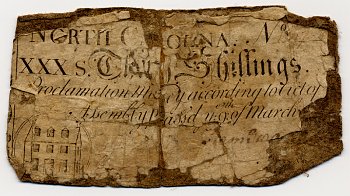 NORTH C OLINA. No
XXX S. Thirty Shillings.
Proclamation Money according to Act of
Assembly Pass'd ye 9 of March